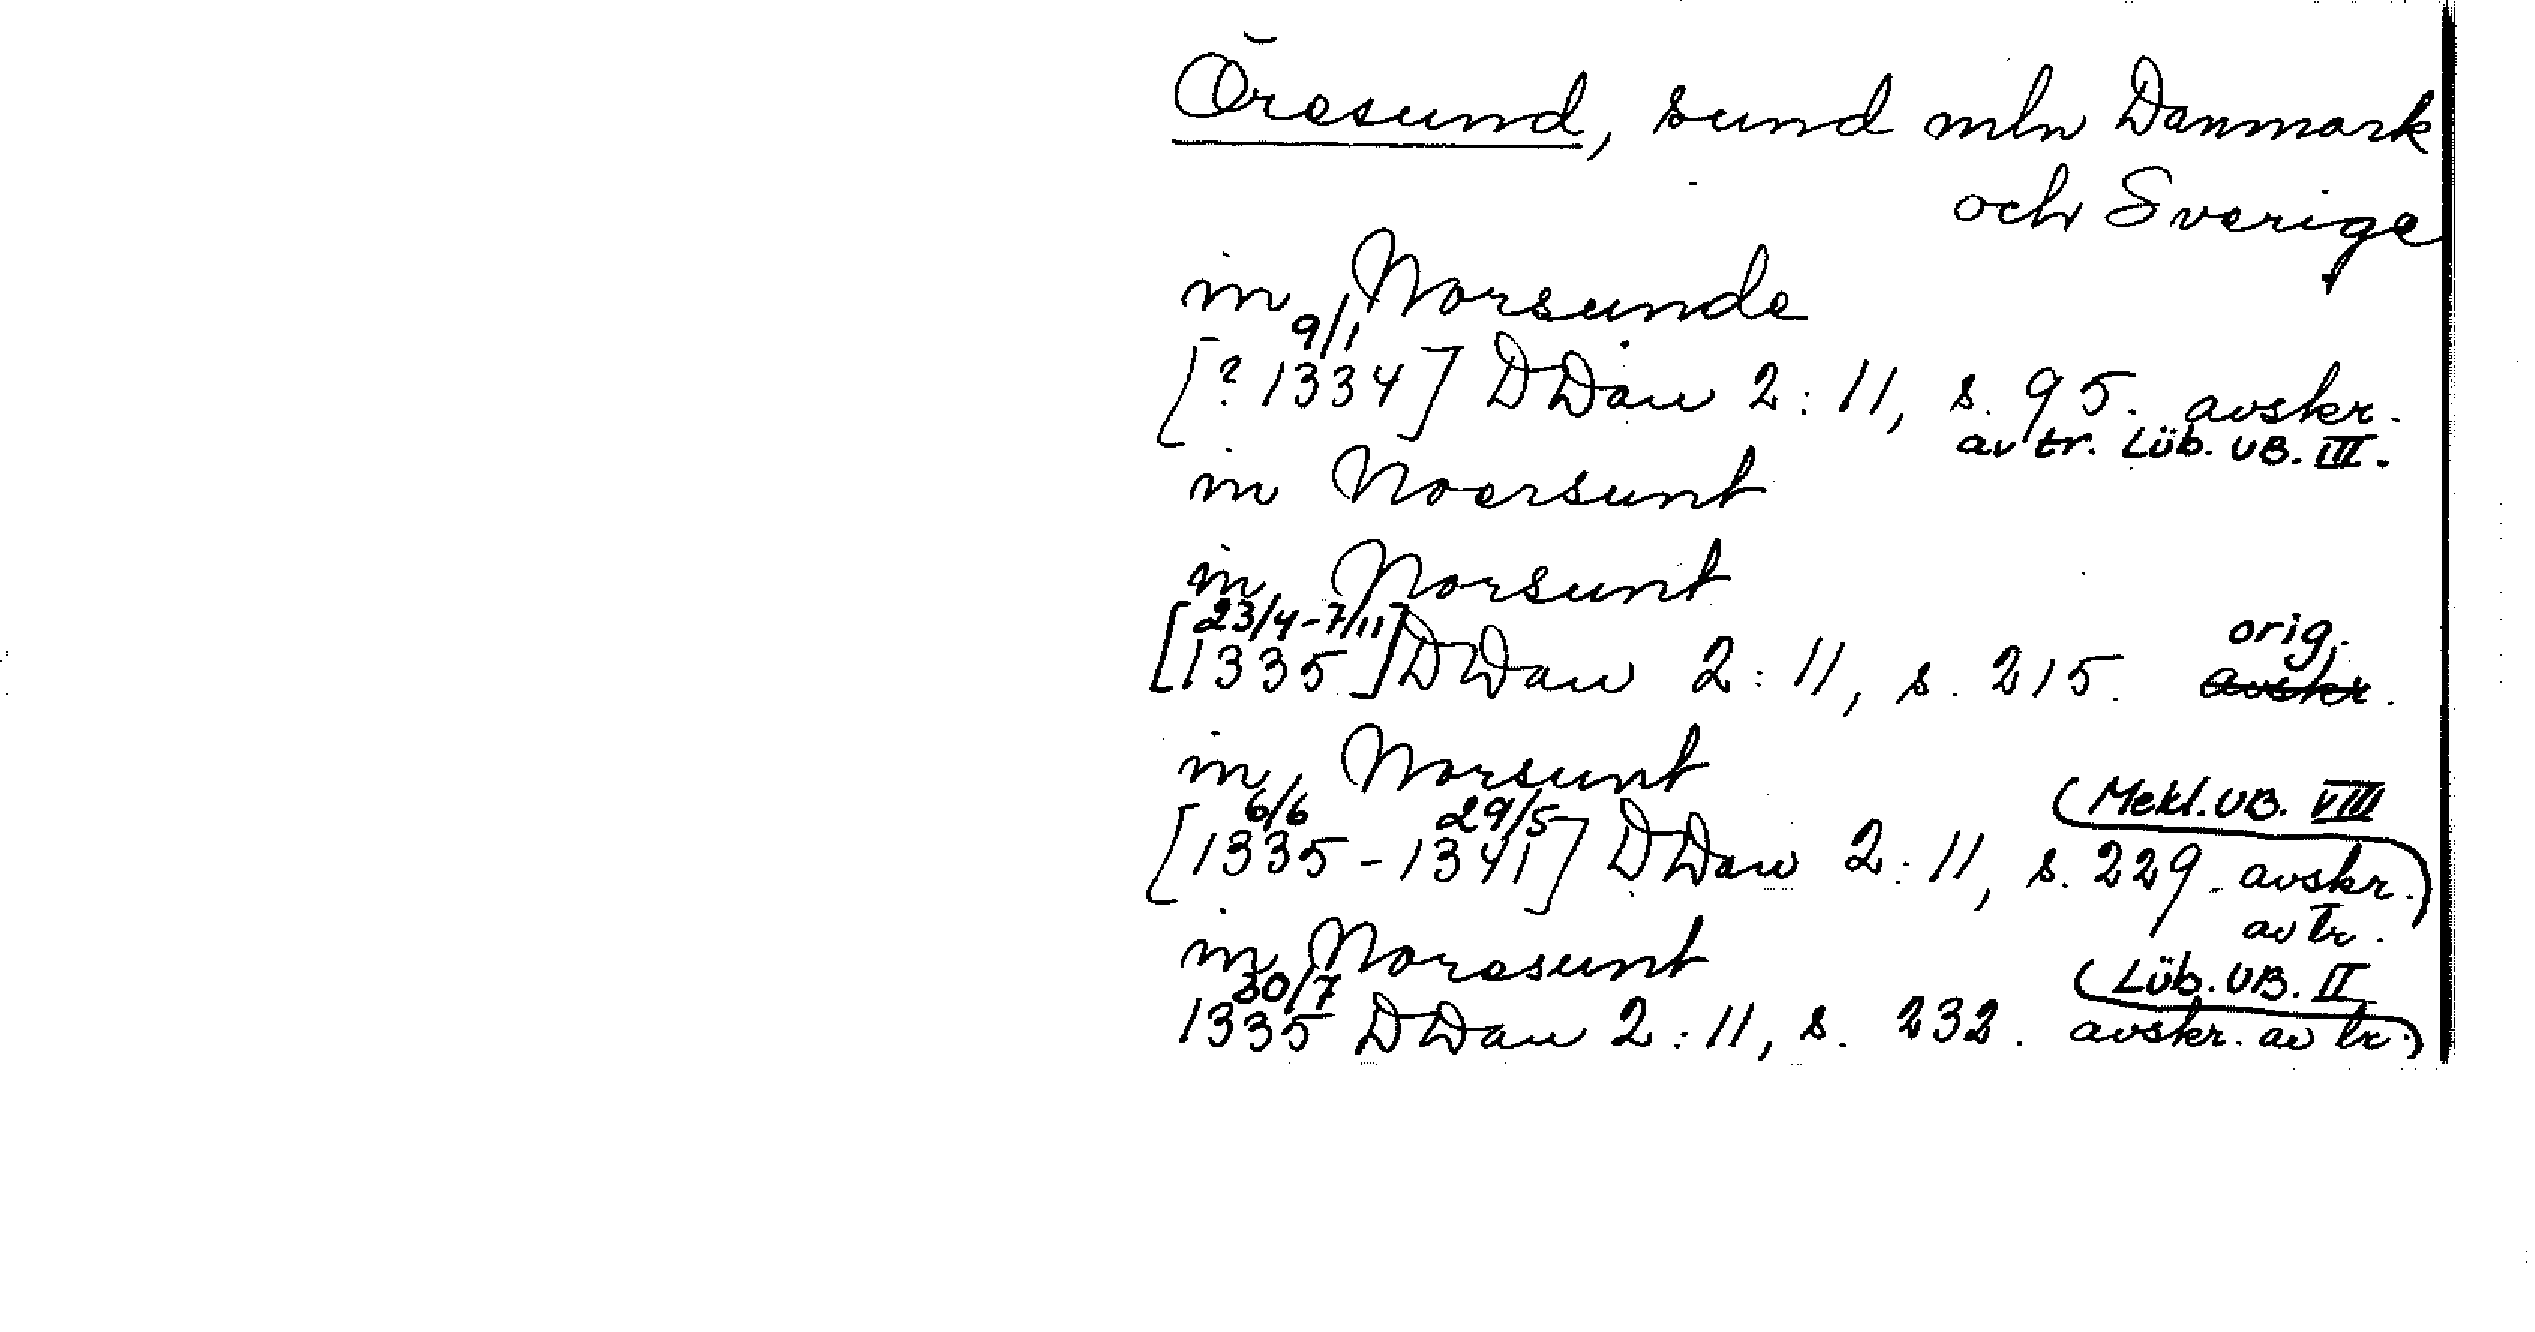 Öresund, sund mln Danmark
och Sverige
in Norsunde
9/1
[? 1334] DDan 2:11, s. 95. avskr.
av tr. Lüb. UB. III.
in Noersunt
in Norsunt
23/4-7/11 orig.
[1335] DDan 2:11, s. 215. avskr.
in Norsunt
6/6 29/5 (Mekl. UB. VIII
[1335-1341] DDan 2:11, s. 229. avskr.)
av tr.
in Noresunt
30/7 (Lüb. UB. II
1335 DDan 2:11, s. 232. avskr. av tr.)